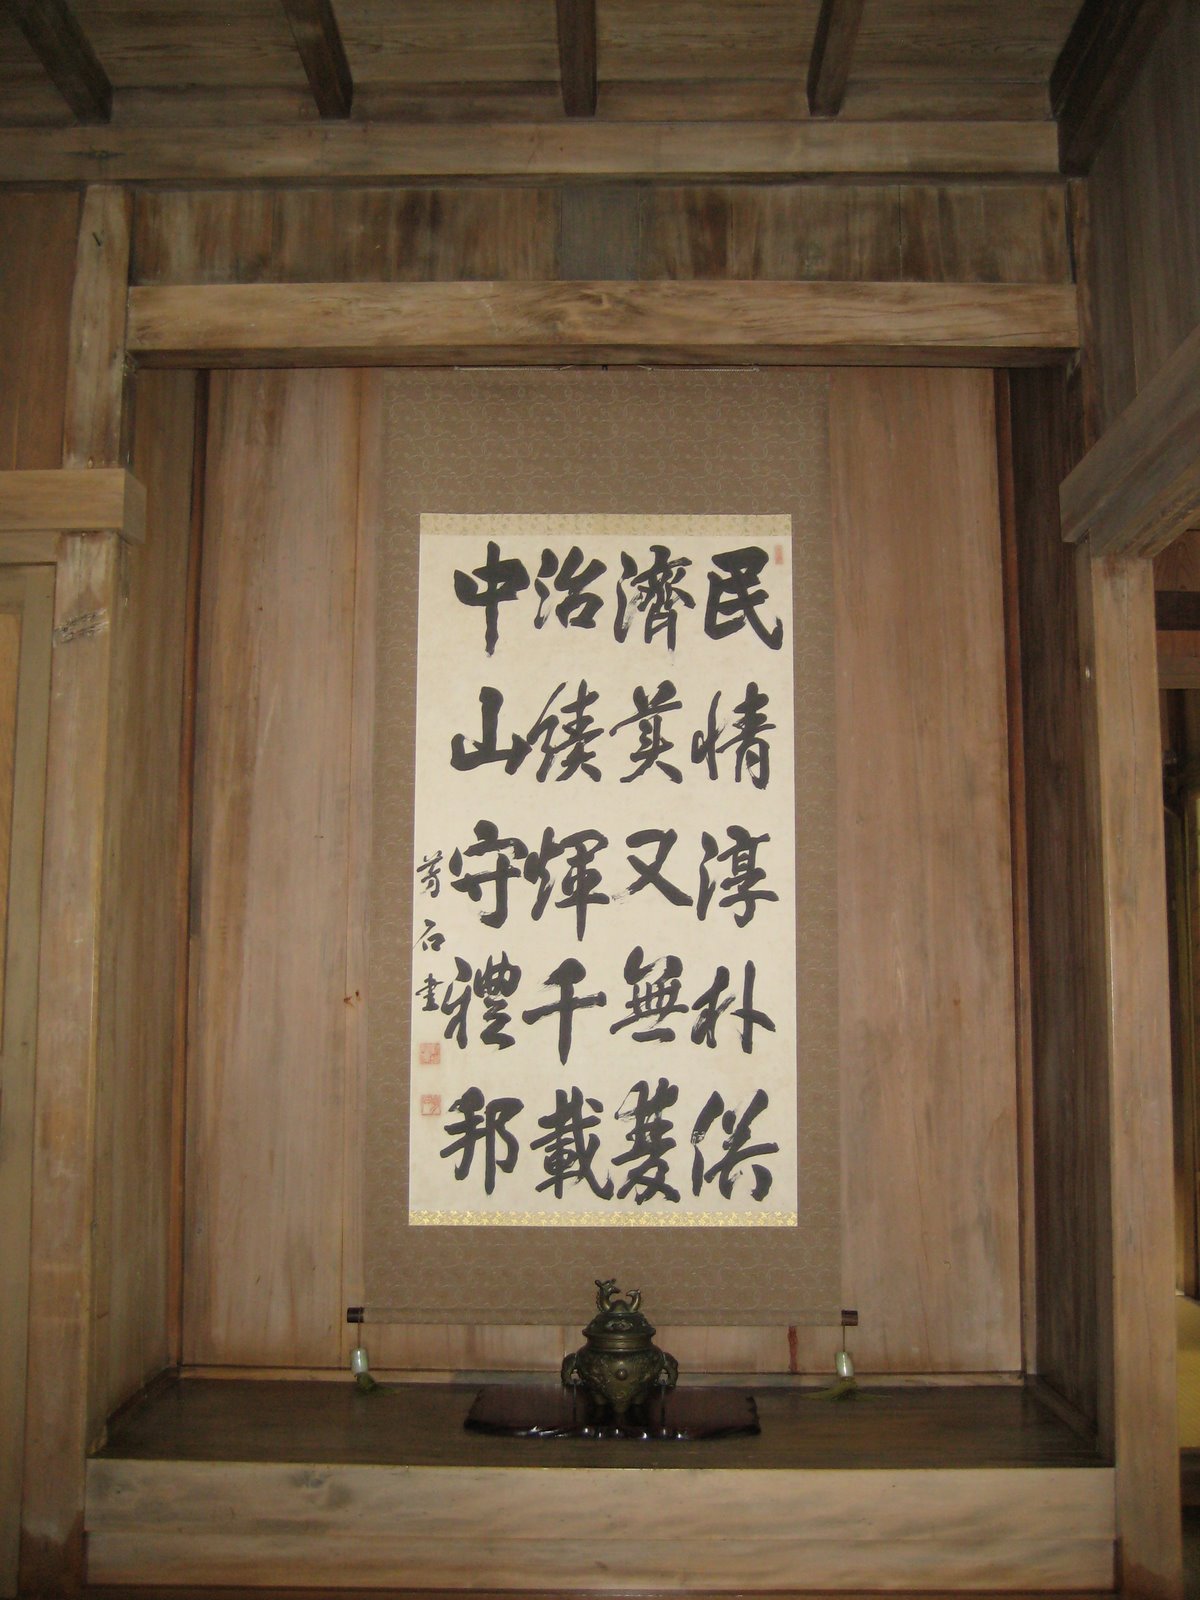 民情淳朴俗
濟美又無双
治績輝千載
中山守禮邦
芳石書